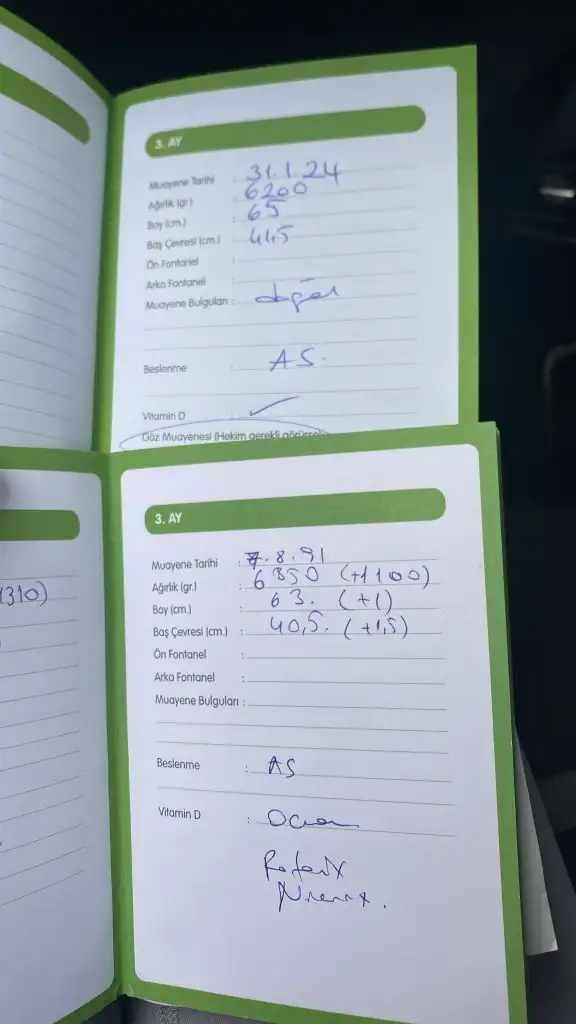 3. AY
Muayene Tarihi : 31.1.24
Ağırlık (gr.) : 6200
Boy (cm.) : 65
Baş Çevresi (cm.) : 41,5
Ön Fontanel :
Arka Fontanel :
Muayene Bulguları : doğal
Beslenme : AS.
Vitamin D : ✓
Göz Muayenesi (Hekim gerekli görürse)
1310)
3. AY
Muayene Tarihi : 7.8.91
Ağırlık (gr.) : 6350 (+1100)
Boy (cm.) : 63. (+1)
Baş Çevresi (cm.) : 40,5. (+1,5)
Ön Fontanel :
Arka Fontanel :
Muayene Bulguları :
Beslenme : AS
Vitamin D :